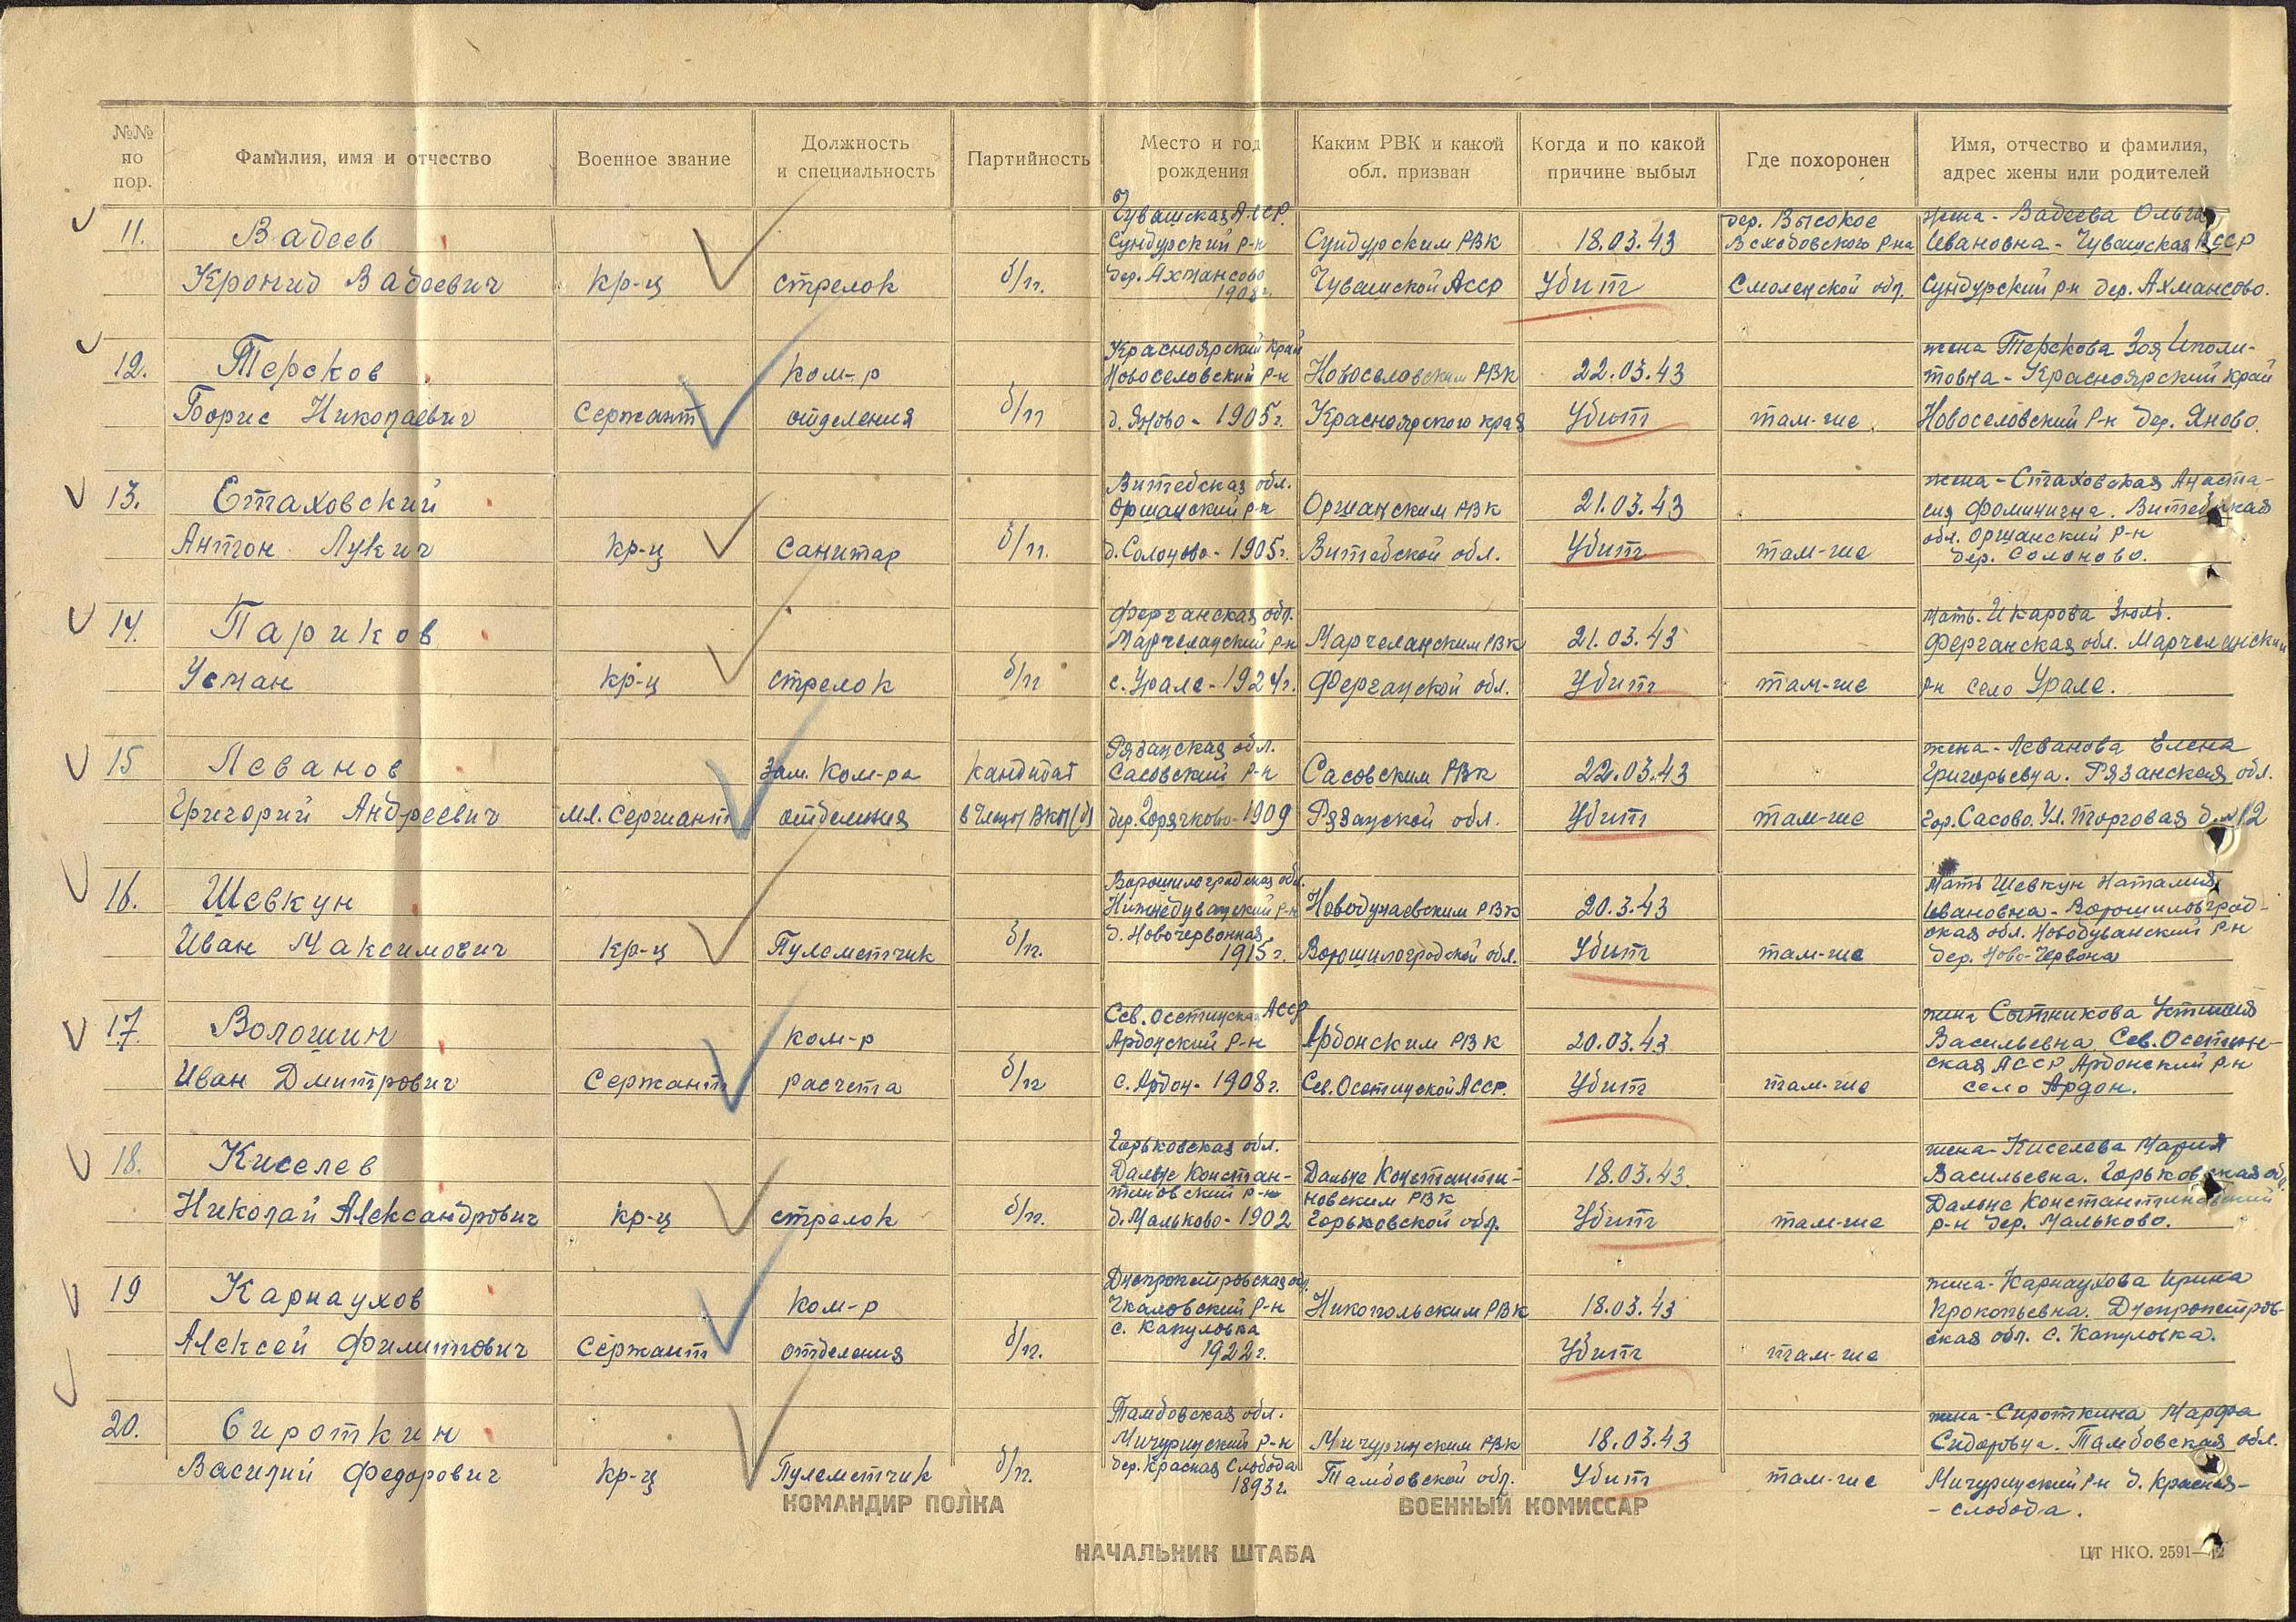 №№ по пор.
Фамилия, имя и отчество
Военное звание
Должность и специальность
Партийность
Место и год рождения
Каким РВК и какой обл. призван
Когда и по какой причине выбыл
Где похоронен
Имя, отчество и фамилия, адрес жены или родителей
11.
Вадеев
Кронид Вадеевич
кр-ц
стрелок
б/п.
Чувашская АССР.
Сундурский р-н
дер. Ахмансово
1908г.
Сундурским РВК
Чувашской Асср
18.03.43
Убит
дер. Высокое
Всходовского р-на
Смоленской обл.
жена - Вадеева Ольга
Ивановна - Чувашская АССР
Сундурский р-н дер. Ахмансово.
12.
Терсков
Борис Николаевич
Сержант
ком-р
отделения
б/п
Красноярский край
Новоселовский р-н
д. Яново - 1905г.
Новоселовским РВК
Красноярского края
22.03.43
Убит
там-же.
жена Терскова Зоя Иполи-
товна - Красноярский край
Новоселовский р-н дер. Яново.
13.
Стаховский
Антон Лукич
кр-ц
санитар
б/п.
Витебская обл.
Оршанский р-н
д. Солоново - 1905г.
Оршанским РВК
Витебской обл.
21.03.43
Убит
там-же
жена - Стаховская Анаста-
сия Фоминична. Витебская
обл. Оршанский р-н
дер. Солоново.
14.
Париков
Усман
кр-ц
стрелок
б/п
Ферганская обл.
Маргеланский р-н
с. Урале - 1924г.
Маргеланским РВК
Ферганской обл.
21.03.43
Убит
там-же
мать. Икарова Зюль.
Ферганская обл. Маргеланский
р-н село Урале.
15
Леванов
Григорий Андреевич
мл. сержант
Зам. Ком-ра
отделения
кандидат
в члены ВКП(б)
Рязанская обл.
Сасовский р-н
дер. Горячково - 1909
Сасовским РВК
Рязанской обл.
22.03.43
Убит
там-же
жена - Леванова Елена
Григорьевна. Рязанская обл.
гор. Сасово. Ул. Торговая д. №12
16.
Шевкун
Иван Максимович
кр-ц
Пулеметчик
б/п.
Ворошилоградская обл.
Нижнедуванский р-н
д. Новочервонная
1915г.
Новодунаевским РВК
Ворошилоградской обл.
20.3.43
Убит
там-же
Мать Шевкун Наталия
Ивановна - Ворошиловград-
ская обл. Новодуванский р-н
дер. Ново-Червона
17.
Волошин
Иван Дмитрович
Сержант
ком-р
расчета
б/п
Сев. Осетинская АССР
Ардонский р-н
с. Ардон - 1908г.
Ардонским РВК
Сев. Осетинской АССР.
20.03.43
Убит
там-же
жена Сытникова Устиния
Васильевна Сев. Осетин-
ская АССР Ардонский р-н
село Ардон.
18.
Киселев
Николай Александрович
кр-ц
стрелок
б/п.
Горьковская обл.
Дальне Констан-
тиновский р-н
д. Мальково - 1902
Дальне Константи-
новским РВК
Горьковской обл.
18.03.43.
Убит
там-же
жена - Киселева Мария
Васильевна. Горьковская обл.
Дальне Константиновский
р-н дер. Мальково.
19
Карнаухов
Алексей Филиппович
Сержант
ком-р
отделения
б/п.
Днепропетровская обл.
Чкаловский р-н
с. Капуловка
1922г.
Никопольским РВК
18.03.43
Убит
там-же
жена - Карнаухова Ирина
Прокопьевна. Днепропетров-
ская обл. с. Капуловка.
20.
Сироткин
Василий Федорович
кр-ц
Пулеметчик
б/п.
Тамбовская обл.
Мичуринский р-н
дер. Красная Слобода
1893г.
Мичуринским РВК
Тамбовской обл.
18.03.43
Убит
там-же
жена - Сироткина Марфа
Сидоровна. Тамбовская обл.
Мичуринский р-н д. Красная-
- слобода.
КОМАНДИР ПОЛКА
ВОЕННЫЙ КОМИССАР
НАЧАЛЬНИК ШТАБА
ЦТ НКО. 2591—42